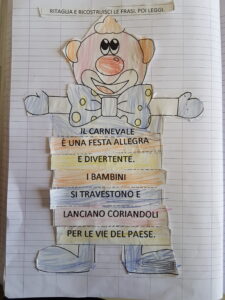 RITAGLIA E RICOSTRUISCI LE FRASI. POI LEGGI.
IL CARNEVALE
È UNA FESTA ALLEGRA
E DIVERTENTE.
I BAMBINI
SI TRAVESTONO E
LANCIANO CORIANDOLI
PER LE VIE DEL PAESE.